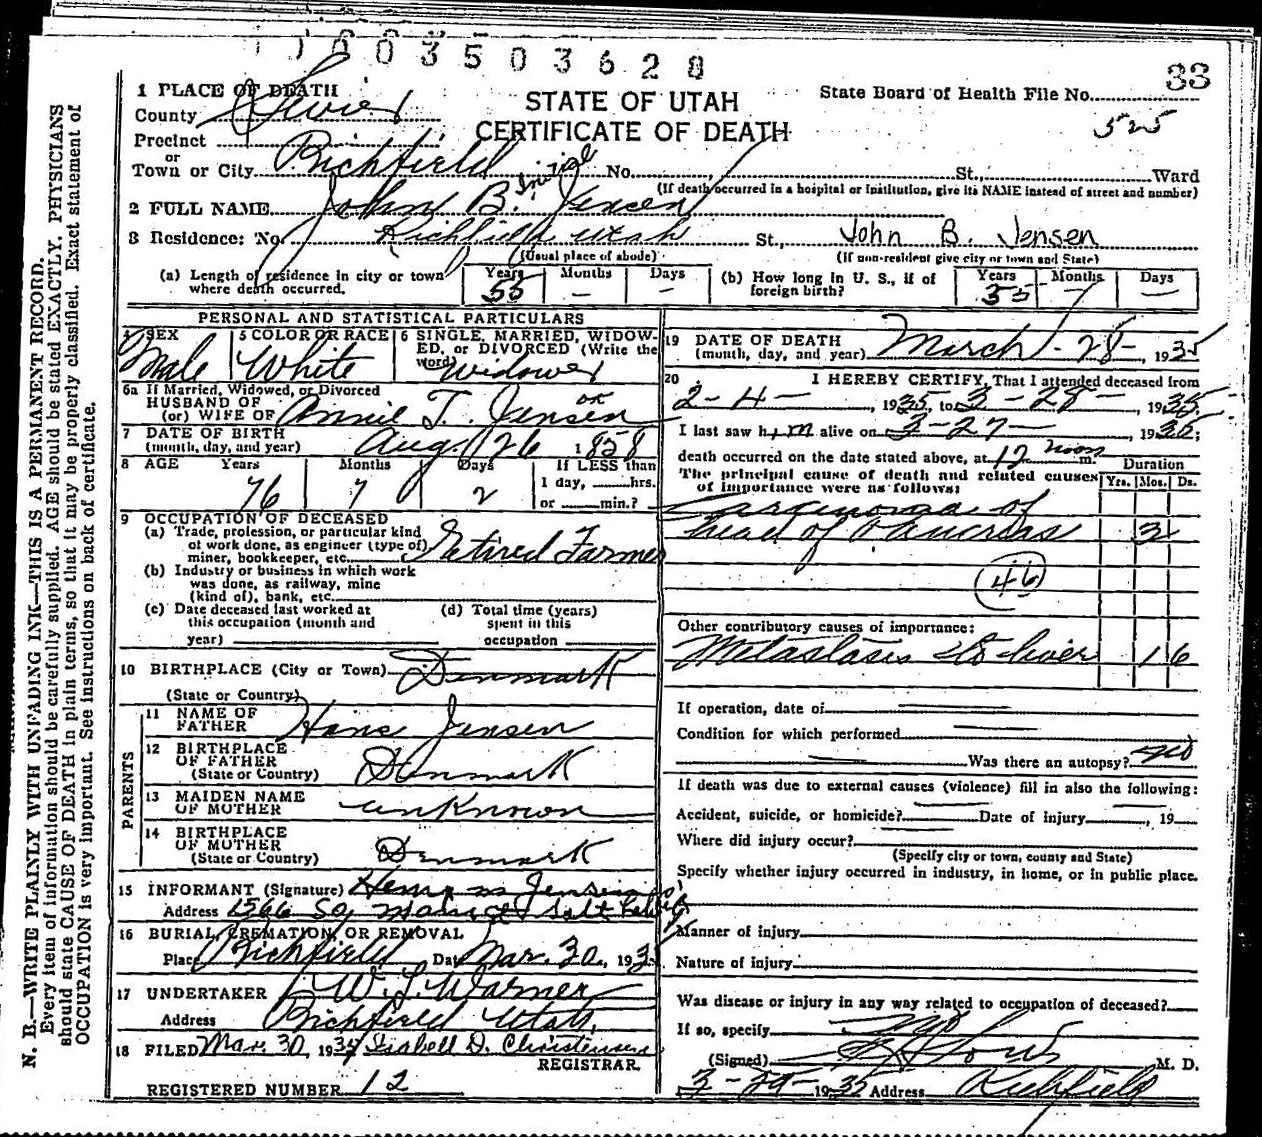 1003503628
33
1 PLACE OF DEATH
County Sevier
STATE OF UTAH
CERTIFICATE OF DEATH
State Board of Health File No.
525
Precinct
or
Town or City Richfield No. St., Ward
(If death occurred in a hospital or institution, give its NAME instead of street and number)
Initial
2 FULL NAME John B. Jensen
3 Residence: No. Richfield, Utah St., John B. Jensen
(Usual place of abode) (If non-resident give city or town and State)
(a) Length of residence in city or town where death occurred. Years 55 Months — Days —
(b) How long in U. S., if of foreign birth? Years 55 Months — Days —
PERSONAL AND STATISTICAL PARTICULARS
4 SEX Male
5 COLOR OR RACE White
6 SINGLE, MARRIED, WIDOWED, or DIVORCED (Write the word) Widower
6a If Married, Widowed, or Divorced
HUSBAND OF
(or) WIFE OF Annie T. Jensen OK
7 DATE OF BIRTH
(month, day, and year) Aug. 26 1858
8 AGE Years 76 Months 7 Days 2 If LESS than
1 day, hrs.
or min.?
9 OCCUPATION OF DECEASED
(a) Trade, profession, or particular kind
of work done, as engineer (type of)
miner, bookkeeper, etc. Retired Farmer
(b) Industry or business in which work
was done, as railway, mine
(kind of), bank, etc.
(c) Date deceased last worked at
this occupation (month and
year)
(d) Total time (years)
spent in this
occupation
10 BIRTHPLACE (City or Town) Denmark
(State or Country)
PARENTS
11 NAME OF
FATHER Hans Jensen
12 BIRTHPLACE
OF FATHER
(State or Country) Denmark
13 MAIDEN NAME
OF MOTHER unknown
14 BIRTHPLACE
OF MOTHER
(State or Country) Denmark
15 INFORMANT (Signature) Jensen
Address 1566 So. Salt Lake
16 BURIAL, CREMATION, OR REMOVAL
Place Richfield Date Mar. 30, 1935
17 UNDERTAKER W. L. Warner
Address Richfield Utah,
18 FILED Mar. 30, 1935 Isabell D. Christensen
REGISTRAR.
REGISTERED NUMBER 12
19 DATE OF DEATH
(month, day, and year) March - 28 - , 1935
20 I HEREBY CERTIFY, That I attended deceased from
2-4- , 1935, to 3-28- , 1935.
I last saw him alive on 3-27- , 1935;
death occurred on the date stated above, at 12 noon m.
Duration
The principal cause of death and related causes
of importance were as follows: Yrs. Mos. Ds.
Carcinoma of
head of Pancreas 3
46
Other contributory causes of importance:
Metastasis to liver 1 6
If operation, date of
Condition for which performed
Was there an autopsy? no
If death was due to external causes (violence) fill in also the following:
Accident, suicide, or homicide? Date of injury , 19
Where did injury occur?
(Specify city or town, county and State)
Specify whether injury occurred in industry, in home, or in public place.
Manner of injury
Nature of injury
Was disease or injury in any way related to occupation of deceased?
If so, specify no
(Signed) M. D.
3-29-1935 Address Richfield
N. B.—WRITE PLAINLY WITH UNFADING INK—THIS IS A PERMANENT RECORD.
Every item of information should be carefully supplied. AGE should be stated EXACTLY. PHYSICIANS
should state CAUSE OF DEATH in plain terms, so that it may be properly classified. Exact statement of
OCCUPATION is very important. See instructions on back of certificate.